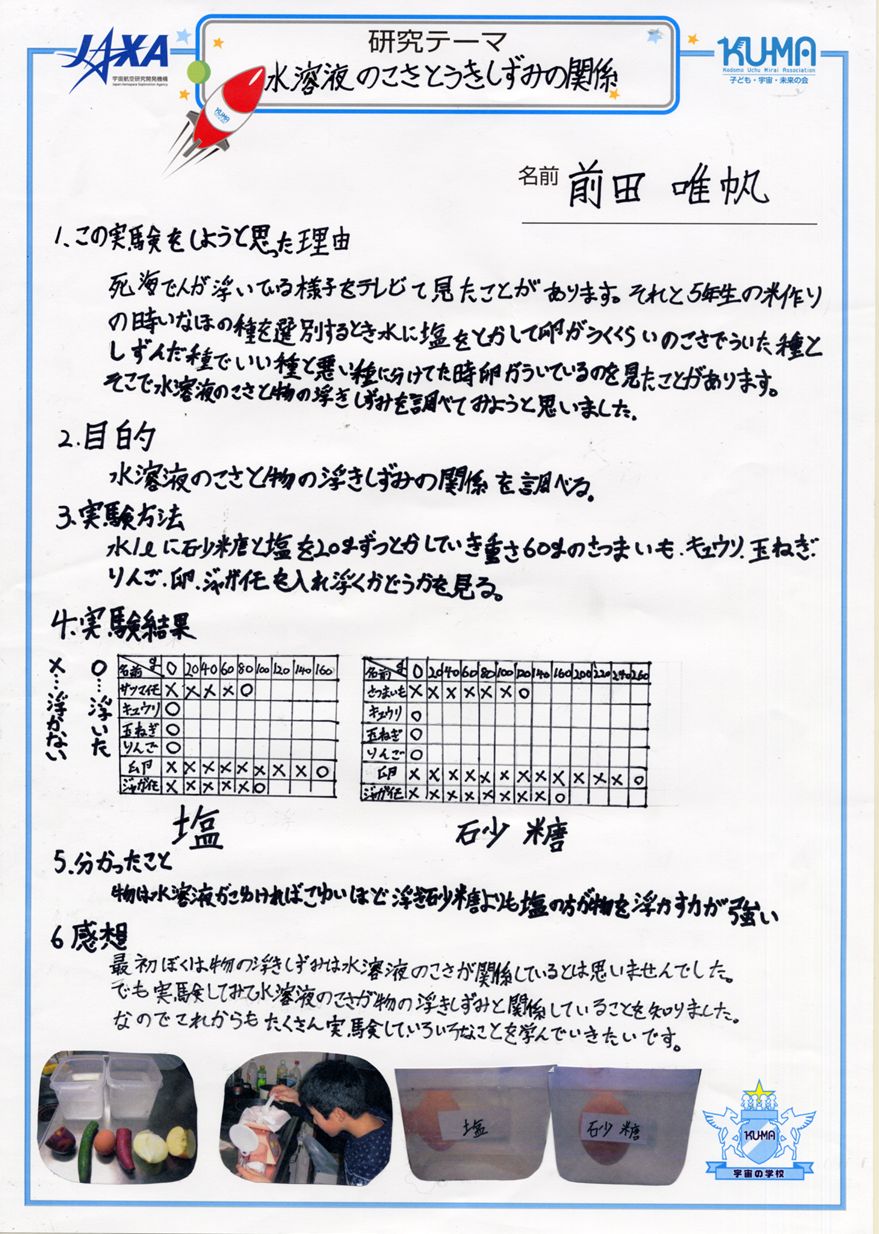 JAXA
宇宙航空研究開発機構
Japan Aerospace Exploration Agency
研究テーマ
水溶液のこさとうきしずみの関係
KU-MA
Kodomo Uchu Mirai Association
子ども・宇宙・未来の会
KU-MA
名前 前田 唯帆
1、この実験をしようと思った理由
死海で人が浮いている様子をテレビで見たことがあります。それと5年生の米作り
の時いなほの種を選別するとき水に塩をとかして卵がうくくらいのこさでういた種と
しずんだ種でいい種と悪い種に分けてた時卵がういているのを見たことがあります。
そこで水溶液のこさと物の浮きしずみを調べてみようと思いました。
2.目的
水溶液のこさと物の浮きしずみの関係を調べる。
3.実験方法
水1ℓに砂糖と塩を20gずつとかしていき重さ60gのさつまいも、キュウリ、玉ねぎ、
りんご、卵、ジャガイモを入れ浮くかどうかを見る。
4.実験結果
○…浮いた
×…浮かない
名前 g 0 20 40 60 80 100 120 140 160
サツマイモ × × × × ○
キュウリ ○
玉ねぎ ○
りんご ○
卵 × × × × × × × × ○
ジャガイモ × × × × × ○
塩
名前 g 0 20 40 60 80 100 120 140 160 200 220 240 260
さつまいも × × × × × × ○
キュウリ ○
玉ねぎ ○
りんご ○
卵 × × × × × × × × × × × × ○
ジャガイモ × × × × × × × × ○
砂糖
5.分かったこと
物は水溶液がこゆければこゆいほど浮き砂糖よりも塩の方が物を浮かす力が強い
6 感想
最初ぼくは物の浮きしずみは水溶液のこさが関係しているとは思いませんでした。
でも実験してみて水溶液のこさが物の浮きしずみと関係していることを知りました。
なのでこれからもたくさん実験していろいろなことを学んでいきたいです。
塩
砂糖
KU-MA
宇宙の学校